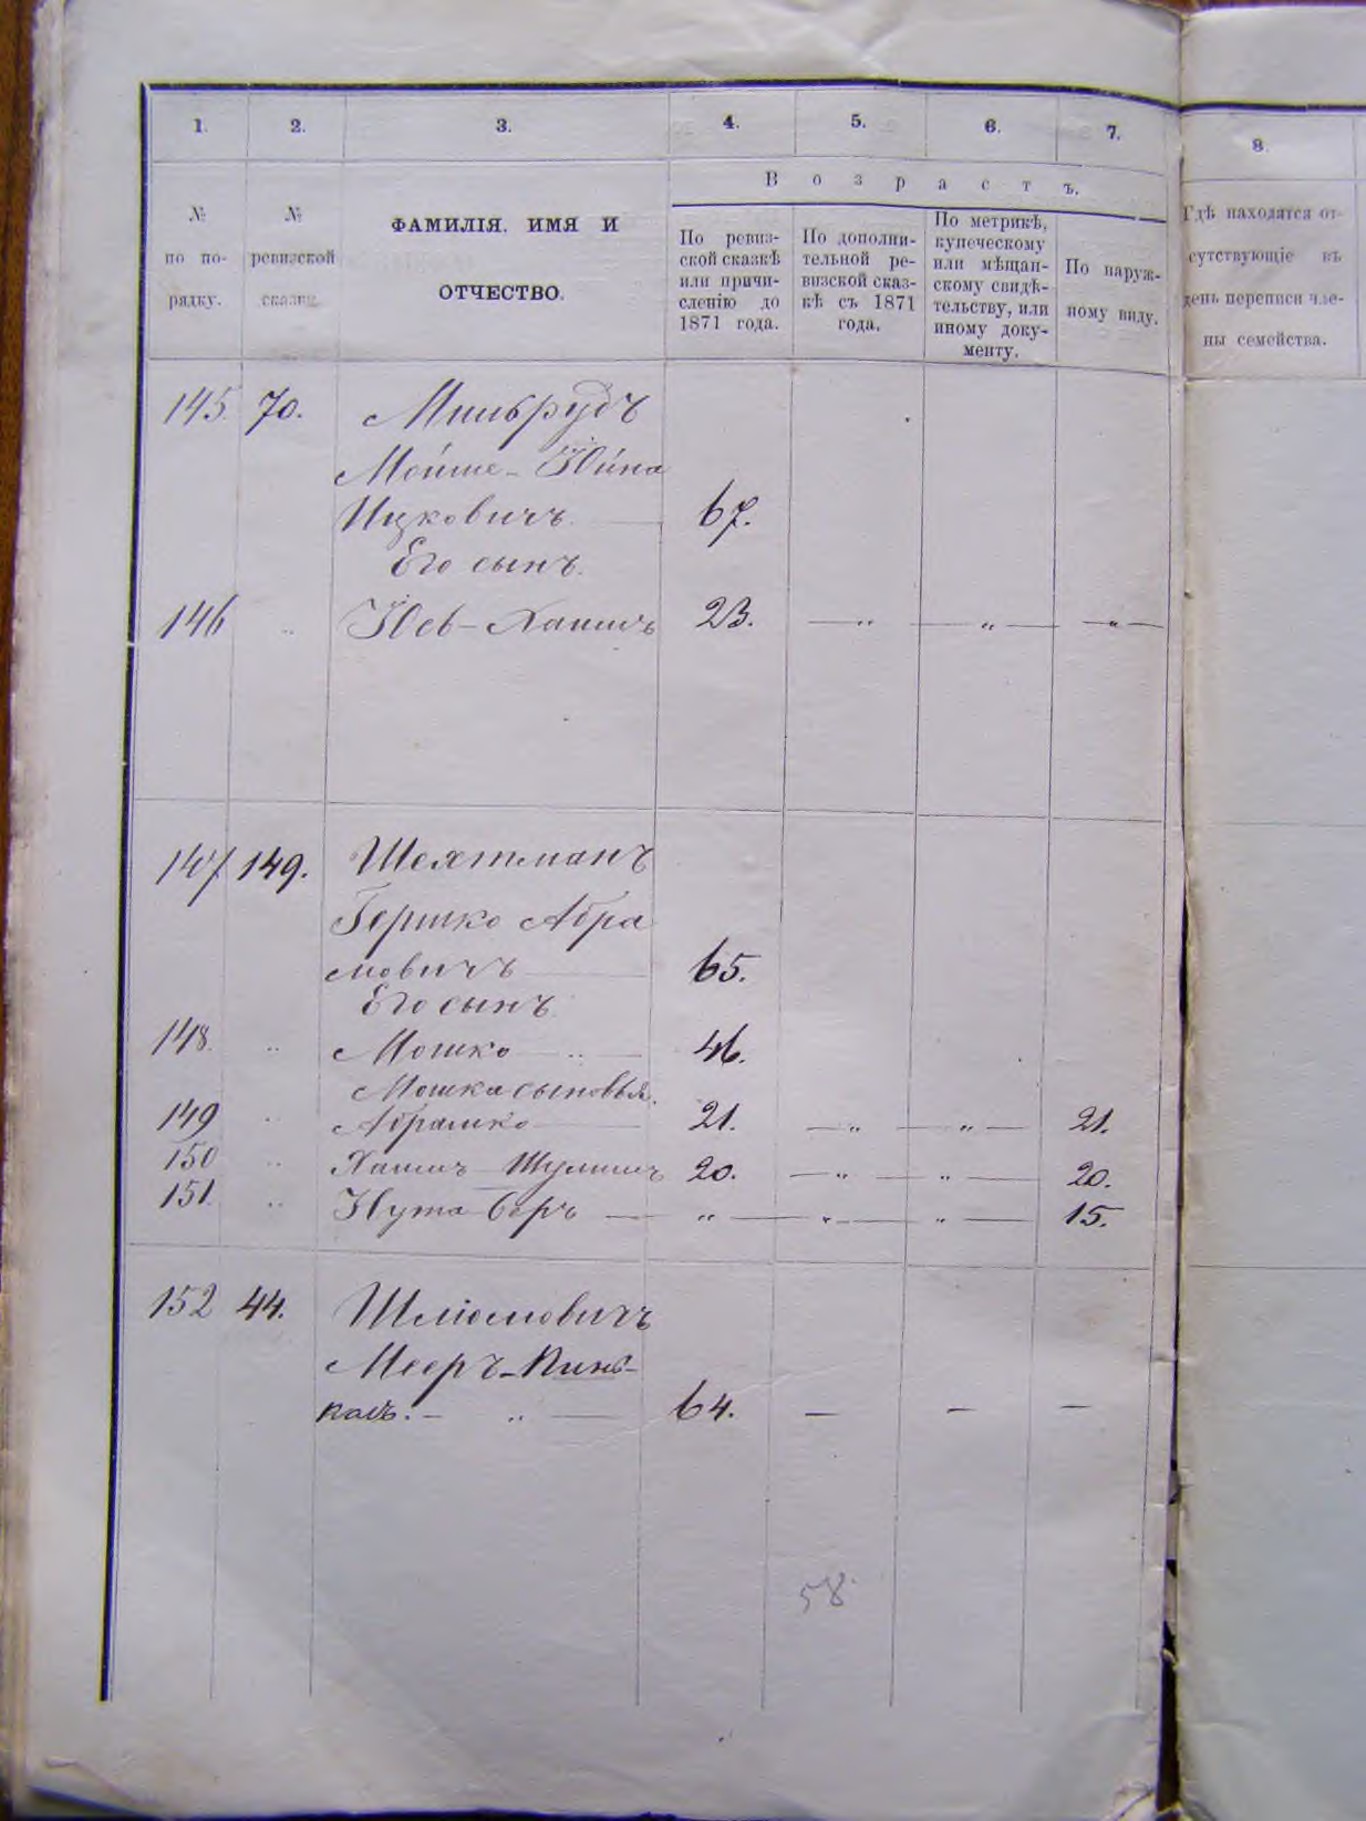 1. 2. 3. 4. 5. 6. 7. 8.
В о з р а с т ъ.
№ по по-
рядку.
№ ревизской
сказки.
ФАМИЛІЯ, ИМЯ И
ОТЧЕСТВО.
По ревиз-
ской сказкѣ
или причи-
сленію до
1871 года.
По дополни-
тельной ре-
визской сказ-
кѣ съ 1871
года.
По метрикѣ,
купеческому
или мѣщан-
скому свидѣ-
тельству, или
иному доку-
менту.
По наруж-
ному виду.
Гдѣ находятся от-
сутствующіе въ
день переписи чле-
ны семейства.
145. 70. Мильрудъ
Мойше-Юйна
Ицковичъ 67.
Его сынъ.
146 „ Хаимъ 23. — „ — „ — „ —
147 149. Шехтманъ
Гершко Абра
мовичъ 65.
Его сынъ
148. „ Мошко — „ — 46.
Мошка сыновья.
149 „ Абрамко 21. — „ — „ — 21.
150 „ Хаимъ Шулимъ 20. — „ — „ — 20.
151. „ Нута Беръ — „ — „ — „ — 15.
152 44. Шліомовичъ
Мееръ-Пинь-
касъ. — „ — 64. — — —
58.